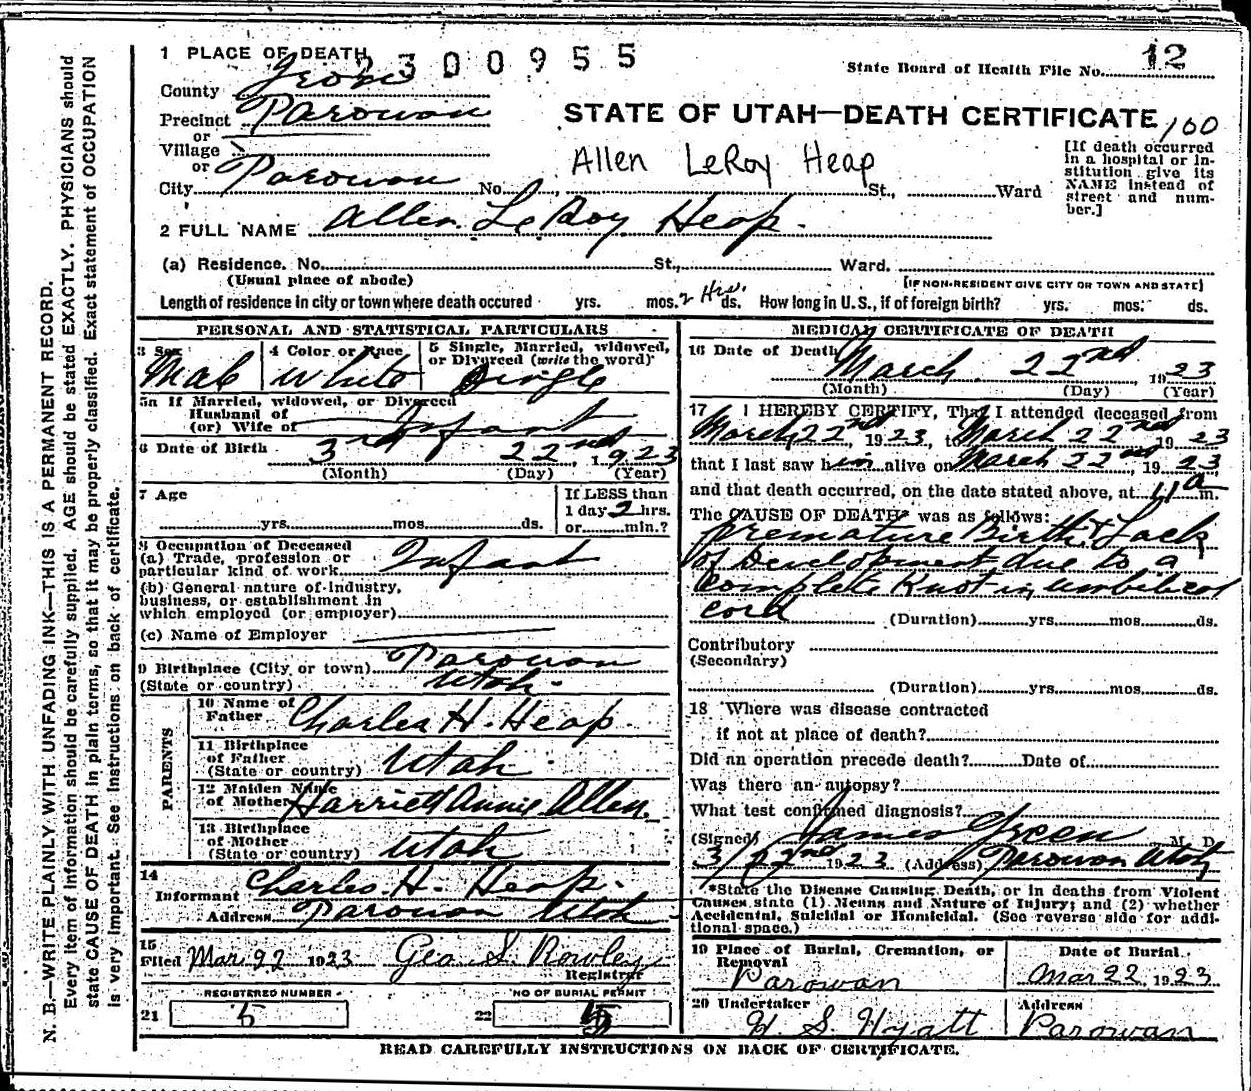 1 PLACE OF DEATH 2300955
State Board of Health File No. 12
County Iron
Precinct Parowan
STATE OF UTAH—DEATH CERTIFICATE 100
or
Village
or
City Parowan No. St., Ward
Allen LeRoy Heap
[If death occurred
in a hospital or in-
stitution give its
NAME instead of
street and num-
ber.]
2 FULL NAME Allen LeRoy Heap.
(a) Residence. No. St., Ward.
(Usual place of abode) [IF NON-RESIDENT GIVE CITY OR TOWN AND STATE]
Length of residence in city or town where death occured yrs. mos. 2 Hrs. ds. How long in U.S., if of foreign birth? yrs. mos. ds.
PERSONAL AND STATISTICAL PARTICULARS
3 Sex Male
4 Color or Race White
5 Single, Married, widowed,
or Divorced (write the word)
Single
5a If Married, widowed, or Divorced
Husband of
(or) Wife of Infant
6 Date of Birth 3rd 22nd, 1923
(Month) (Day) (Year)
7 Age
yrs. mos. ds.
If LESS than
1 day 2 hrs.
or min.?
8 Occupation of Deceased
(a) Trade, profession or
particular kind of work Infant
(b) General nature of industry,
business, or establishment in
which employed (or employer)
(c) Name of Employer
9 Birthplace (City or town) Parowan
(State or country) Utah.
PARENTS
10 Name of
Father Charles H. Heap.
11 Birthplace
of Father
(State or country) Utah.
12 Maiden Name
of Mother Harriett Annie Allen.
13 Birthplace
of Mother
(State or country) Utah
14
Informant Charles H. Heap.
Address Parowan Utah
15
Filed Mar 22 1923 Geo S. Rowley
Registrar
REGISTERED NUMBER NO OF BURIAL PERMIT
21 5 22 5
MEDICAL CERTIFICATE OF DEATH
16 Date of Death
March 22nd 1923
(Month) (Day) (Year)
17 I HEREBY CERTIFY, That I attended deceased from
March 22nd 1923, to March 22nd 1923
that I last saw him alive on March 22nd, 1923
and that death occurred, on the date stated above, at 11 a m.
The CAUSE OF DEATH* was as follows:
premature Birth & Lack
of Development due to a
Complete Knot in umbilical
cord (Duration) yrs. mos. ds.
Contributory
(Secondary)
(Duration) yrs. mos. ds.
18 Where was disease contracted
if not at place of death?
Did an operation precede death? Date of
Was there an autopsy?
What test confirmed diagnosis?
(Signed) James Green M. D.
3/22nd 1923 (Address) Parowan Utah
*State the Disease Causing Death, or in deaths from Violent
Causes, state (1) Means and Nature of Injury; and (2) whether
Accidental, Suicidal or Homicidal. (See reverse side for addi-
tional space.)
19 Place of Burial, Cremation, or
Removal
Parowan
Date of Burial
Mar 22, 1923
20 Undertaker
H S Hyatt
Address
Parowan
READ CAREFULLY INSTRUCTIONS ON BACK OF CERTIFICATE.
N. B.—WRITE PLAINLY WITH UNFADING INK—THIS IS A PERMANENT RECORD.
Every item of information should be carefully supplied. AGE should be stated EXACTLY. PHYSICIANS should
state CAUSE OF DEATH in plain terms, so that it may be properly classified. Exact statement of OCCUPATION
is very important. See instructions on back of certificate.